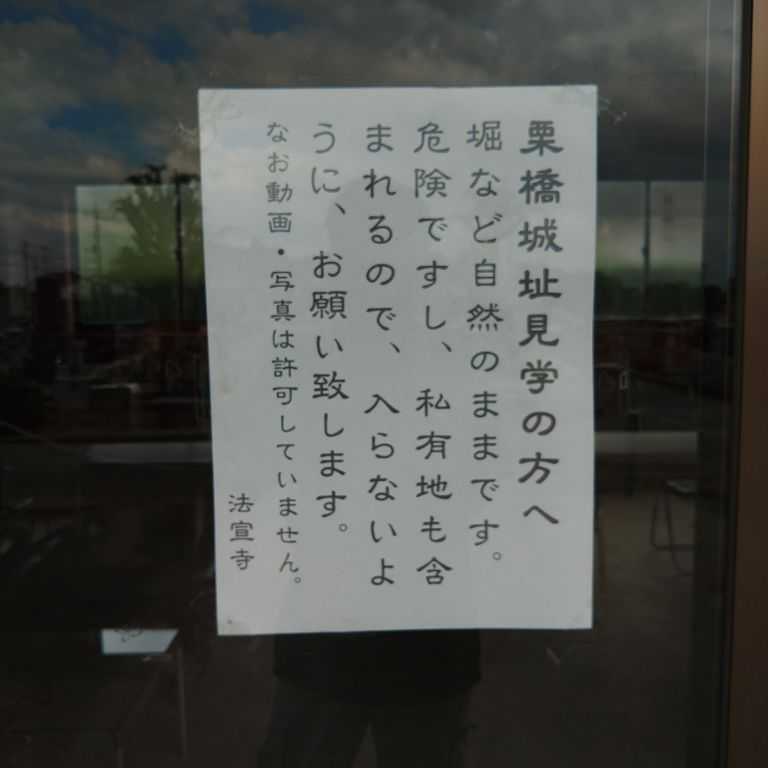 栗橋城址見学の方へ
堀など自然のままです。
危険ですし、私有地も含
まれるので、入らないよ
うに、お願い致します。
なお動画・写真は許可していません。
法宣寺